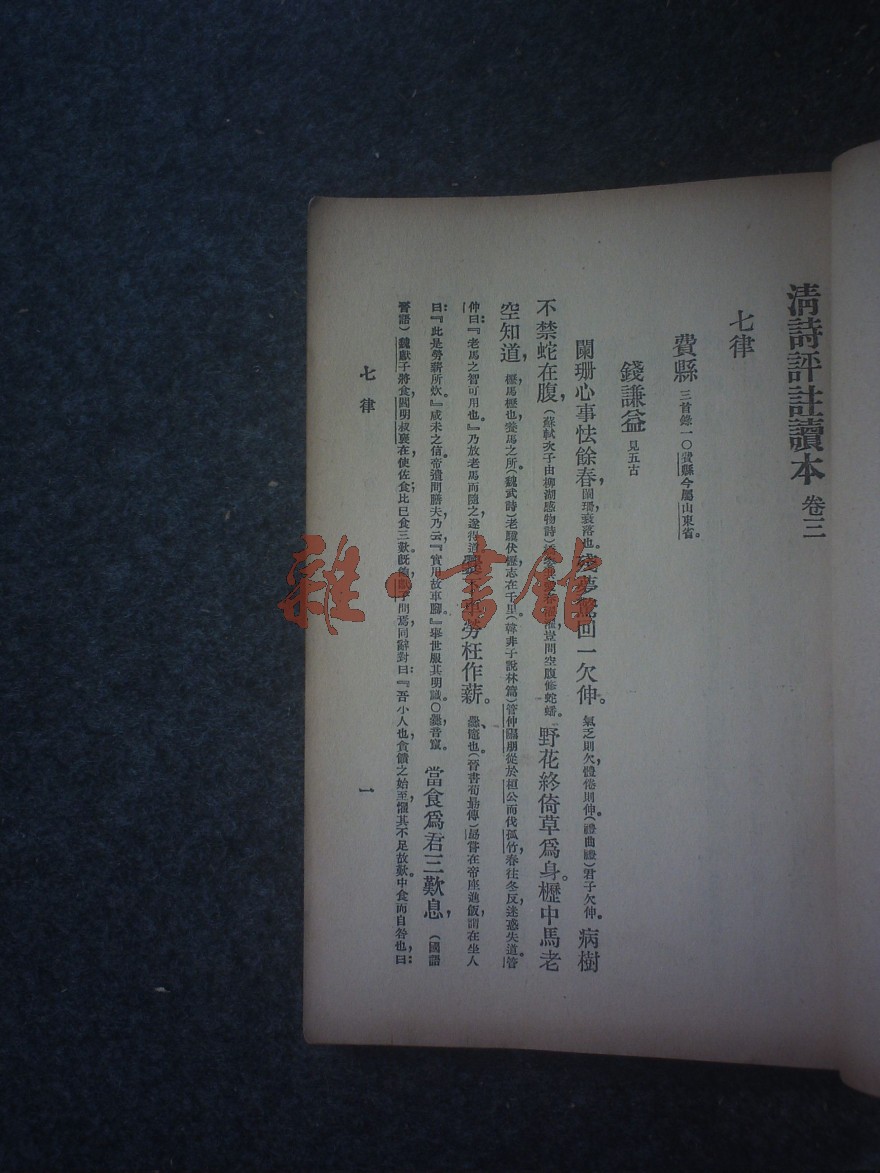 清詩評註讀本 卷三
七律
費縣 三首錄一〇費縣今屬山東省。
錢謙益 見五古
闌珊心事怯餘春，闌珊、衰落也。殘夢驚回一欠伸。氣乏則欠，體倦則伸。（禮曲禮）君子欠伸。病樹
不禁蛇在腹，（蘇軾次子由柳湖感物詩）豈問空腹修蛇蟠。野花終倚草爲身。櫪中馬老
空知道，櫪、馬櫪也、養馬之所（魏武詩）老驥伏櫪、志在千里。（韓非子說林篇）管仲隰朋從於桓公而伐孤竹，春往冬反，迷惑失道。管
仲曰：『老馬之智可用也。』乃放老馬而隨之、遂得道。爨下車勞枉作薪。爨、竈也。（晉書荀勗傳）勗嘗在帝座進飯，謂在坐人
曰：『此是勞薪所炊。』咸未之信。帝遣問膳夫，乃云：『實用故車腳。』舉世服其明識。〇爨音竄。當食爲君三歎息，（國語
晉語）魏獻子將食，閻明叔褒在，使佐食，比已食三歎。既飽，獻子問焉，同辭對曰：『吾小人也，貪饋之始至，懼其不足，故歎。中食而自咎也，曰：
七律
一
雜·書館